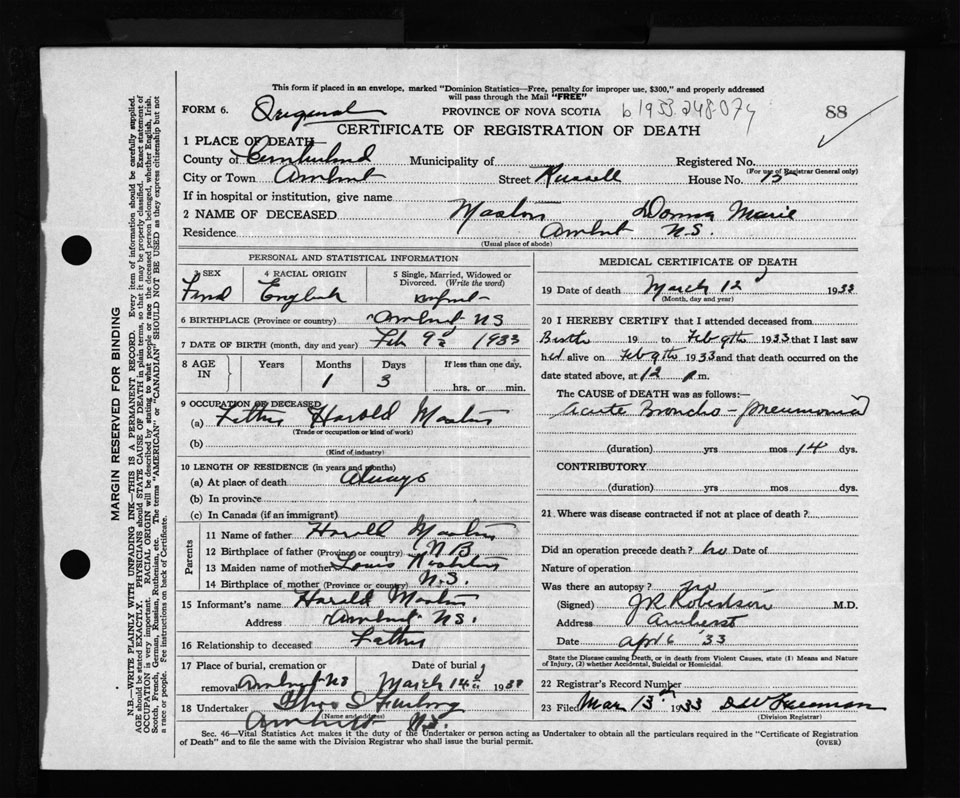 This form if placed in an envelope, marked "Dominion Statistics—Free, penalty for improper use, $300," and properly addressed
will pass through the Mail "FREE"
FORM 6. Original PROVINCE OF NOVA SCOTIA 88
CERTIFICATE OF REGISTRATION OF DEATH
1 PLACE OF DEATH—
County of Cumberland Municipality of Registered No.
(For use of Registrar General only)
City or Town Amherst Street Russell House No. 13
If in hospital or institution, give name
2 NAME OF DECEASED Donna Marie
Residence Amherst N.S.
(Usual place of abode)
PERSONAL AND STATISTICAL INFORMATION
3 SEX 4 RACIAL ORIGIN 5 Single, Married, Widowed or Divorced. (Write the word)
English Infant
6 BIRTHPLACE (Province or country) Amherst NS
7 DATE OF BIRTH (month, day and year) Feb 9th 1933
8 AGE IN Years Months Days If less than one day.
1 3 hrs. or min.
9 OCCUPATION OF DECEASED
(a) Father Harold
(Trade or occupation or kind of work)
(b)
(Kind of industry)
10 LENGTH OF RESIDENCE (in years and months)
(a) At place of death always
(b) In province
(c) In Canada (if an immigrant)
Parents
11 Name of father Harold
12 Birthplace of father (Province or country) N B
13 Maiden name of mother
14 Birthplace of mother (Province or country) N.S.
15 Informant's name Harold
Address Amherst NS.
16 Relationship to deceased Father
17 Place of burial, cremation or Date of burial
removal Amherst NS March 14th 1933
18 Undertaker
(Name and address)
Amherst NS.
MEDICAL CERTIFICATE OF DEATH
19 Date of death March 12 1933
(Month, day and year)
20 I HEREBY CERTIFY that I attended deceased from
Birth 19 to Feb 9th 1933 that I last saw
her alive on Feb 9th 1933 and that death occurred on the
date stated above, at 12 p m.
The CAUSE of DEATH was as follows:—
Acute Broncho-Pneumonia
(duration) yrs mos 14 dys.
CONTRIBUTORY
(duration) yrs mos dys.
21. Where was disease contracted if not at place of death?
Did an operation precede death? no Date of
Nature of operation
Was there an autopsy? no
(Signed) J R Robertson M.D.
Address Amherst
Date apr 6 '33
State the Disease causing Death, or in death from Violent Causes, state (1) Means and Nature
of Injury, (2) whether Accidental, Suicidal or Homicidal.
22 Registrar's Record Number
23 Filed Mar 13th 1933
(Division Registrar)
Sec. 46—Vital Statistics Act makes it the duty of the Undertaker or person acting as Undertaker to obtain all the particulars required in the "Certificate of Registration
of Death" and to file the same with the Division Registrar who shall issue the burial permit. (OVER)
MARGIN RESERVED FOR BINDING
N.B.—WRITE PLAINLY WITH UNFADING INK—THIS IS A PERMANENT RECORD. Every item of information should be carefully supplied.
AGE should be stated EXACTLY. PHYSICIANS should STATE CAUSE OF DEATH in plain terms, so that it may be properly classified. Exact statement of
OCCUPATION is very important. RACIAL ORIGIN will be described by stating to what people or race the deceased person belonged, whether English, Irish,
Scotch, French, German, Russian, Ruthenian, etc. The terms "AMERICAN" or "CANADIAN" SHOULD NOT BE USED as they express citizenship but not
a race or people. Fee instructions on back of Certificate.